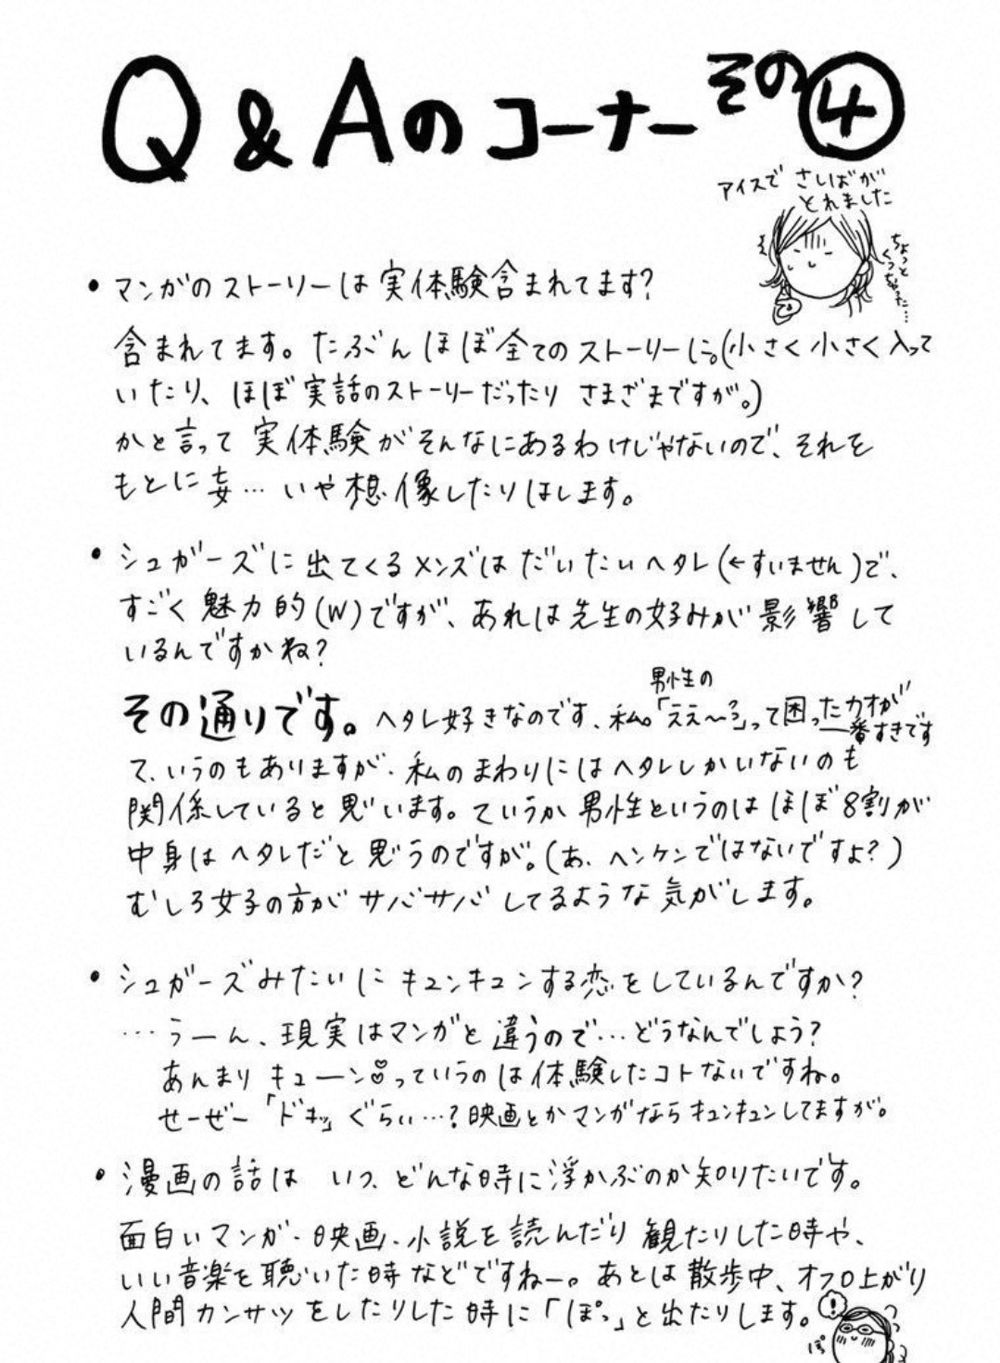 Q&Aのコーナーその④
アイスで さしばが
とれました
ちょっと
くっちゃった…
・マンガのストーリーは実体験含まれてます?
含まれてます。たぶんほぼ全てのストーリーに。(小さく小さく入って
いたり、ほぼ実話のストーリーだったり さまざまですが。)
かと言って実体験がそんなにあるわけじゃないので、それを
もとに妄…いや想像したりはします。
・シュガーズに出てくるメンズはだいたいヘタレ(←すいません)で、
すごく魅力的(W)ですが、あれは先生の好みが影響して
いるんですかね?
その通りです。ヘタレ好きなのです、私。男性の「ええ〜っ」って困ったカオが
一番すきです
て、いうのもありますが、私のまわりにはヘタレしかいないのも
関係していると思います。ていうか男性というのはほぼ8割が
中身はヘタレだと思うのですが。(あ、ヘンケンではないですよ?)
むしろ女子の方がサバサバしてるような気がします。
・シュガーズみたいにキュンキュンする恋をしているんですか?
…うーん、現実はマンガと違うので…どうなんでしょう?
あんまりキューン♡っていうのは体験したコトないですね。
せーぜー「ドキッ」ぐらい…?映画とかマンガならキュンキュンしてますが。
・漫画の話は いつ、どんな時に浮かぶのか知りたいです。
面白いマンガ・映画・小説を読んだり観たりした時や、
いい音楽を聴いた時などですねー。あとは散歩中、オフロ上がり
人間カンサツをしたりした時に「ぽっ」と出たりします。
!
ぽ